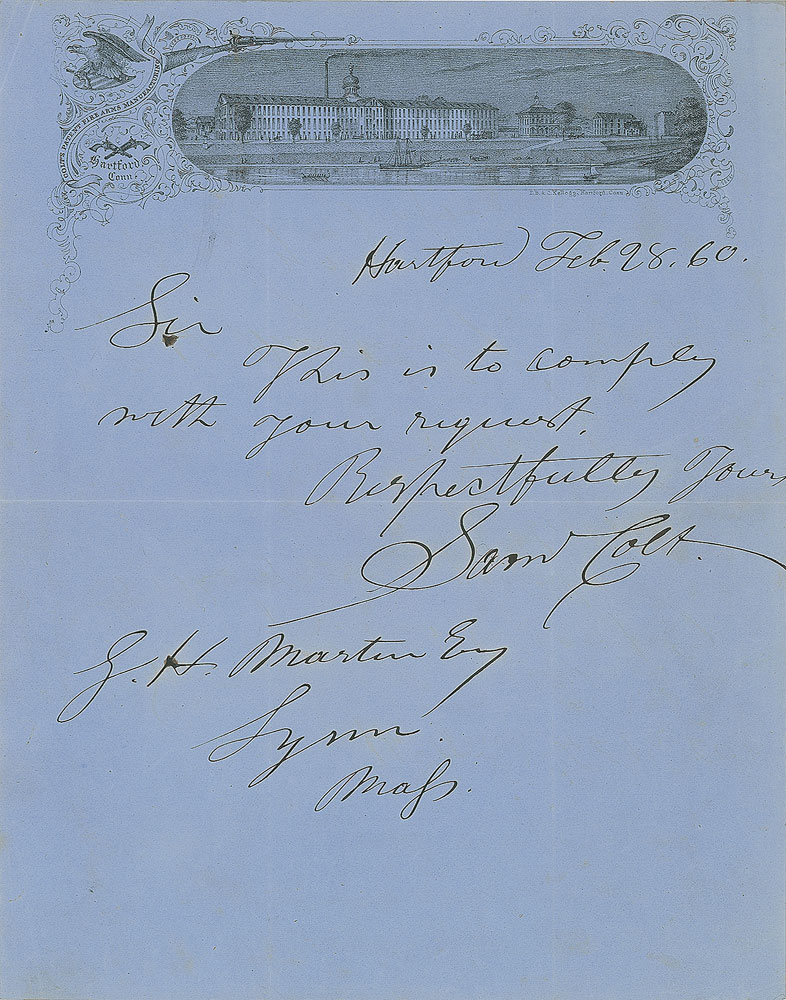 COLT'S PATENT FIRE ARMS MANUFACTURING CO
Hartford
Conn.
E.B. & E.C. Kellogg, Hartford, Conn.
Hartford Feb. 28. 60.
Sir
This is to comply
with your request.
Respectfully Yours
Saml Colt.
G. H. Martin Esq
Lynn.
Mass.